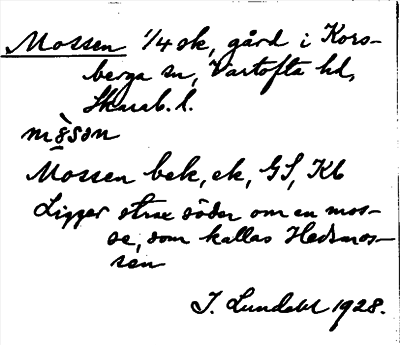 Mossen 1/4 sk, gård i Kors-
berga sn, Vartofta hd,
Skarab. l.
mòsən
Mossen bek, ek, GS, Kb
Ligger strax söder om en mos-
se, som kallas Hedmos-
sen
J. Lundahl 1928.